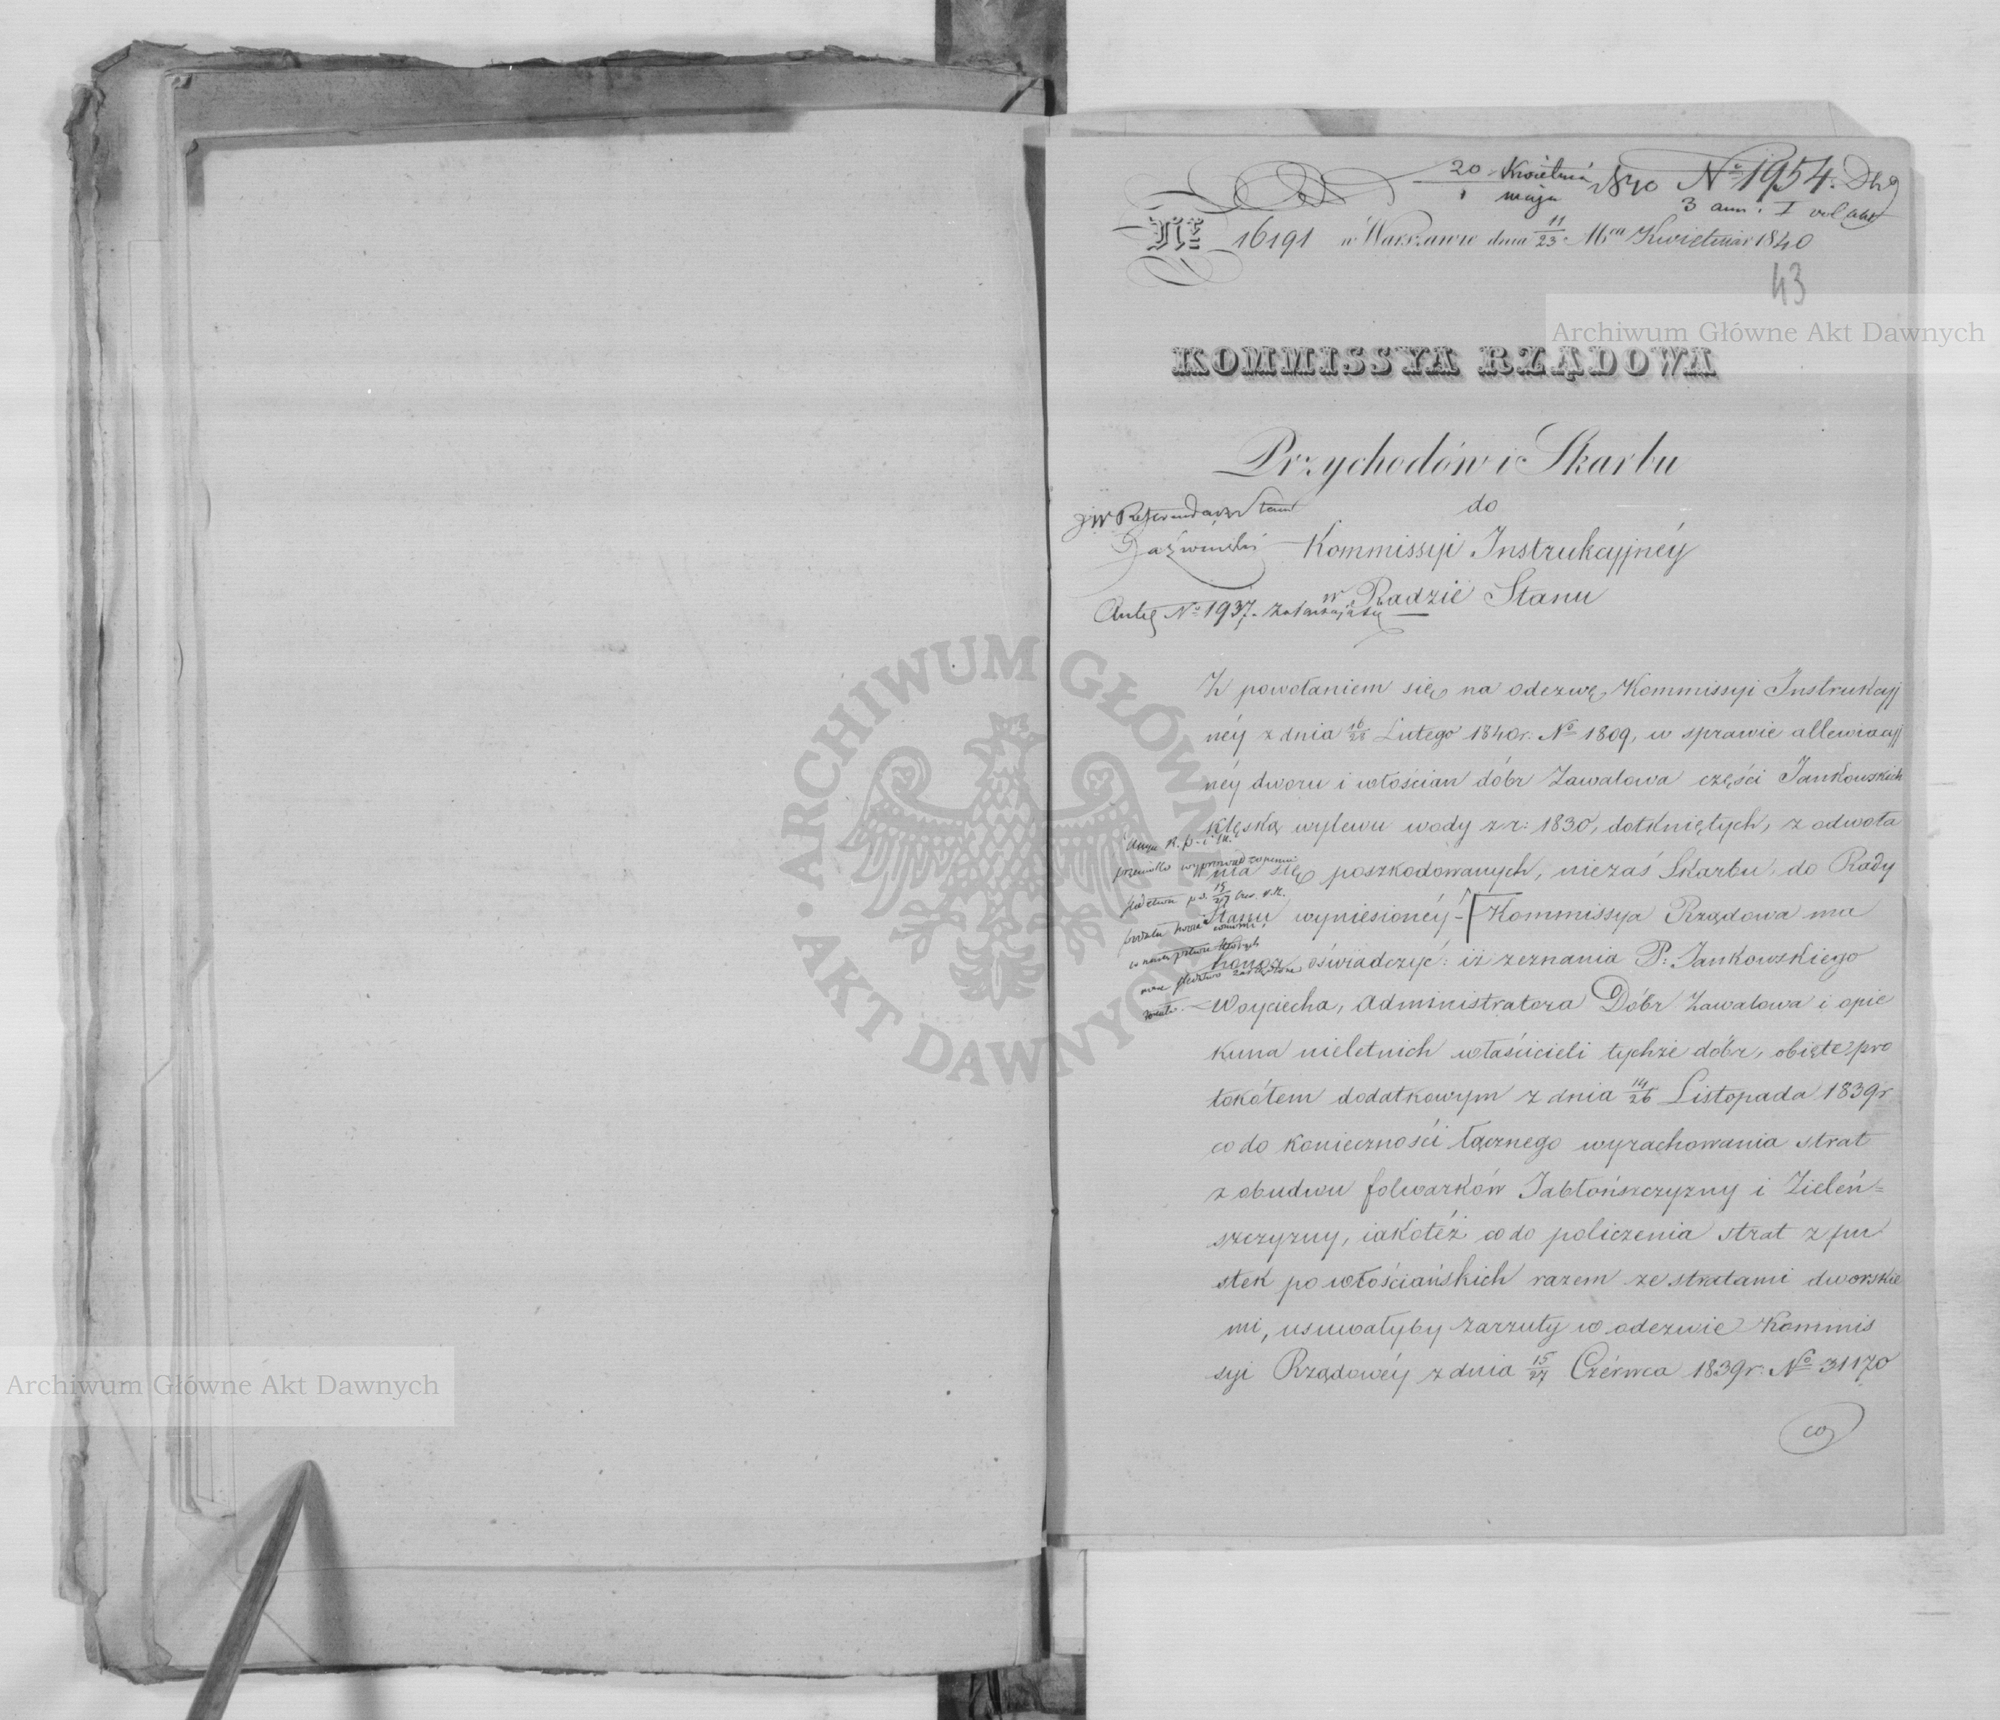 20 Kwietnia 1840 Nº 1954.
1 maja
3 ann. I vol akt
Nº 16191 w Warszawie dnia 11/23 Mca Kwietnia 1840
43
Archiwum Główne Akt Dawnych
KOMMISSYA RZĄDOWA
Przychodów i Skarbu
do
JW Referendarz Stanu
Kommissyi Instrukcyjnéy
w Radzie Stanu
Nº 1937.
Z powołaniem się na odezwę Kommissyi Instrukcyj
néy z dnia 16/28 Lutego 1840r. Nº 1809, w sprawie allewiacyj
néy dworu i włościan dóbr Zawalowa części Jankowskich
klęską wylewu wody z r: 1830, dotkniętych, z odwoła
nia się poszkodowanych, niezaś Skarbu, do Rady
Stanu wyniesionéy - [Kommissya Rządowa ma
honor oświadczyć: iż zeznania P: Jankowskiego
Woyciecha, Administratora Dóbr Zawalowa i opie
kuna nieletnich właścicieli tychże dóbr, obięte pro
tokółem dodatkowym z dnia 14/26 Listopada 1839r
co do konieczności łącznego wyrachowania strat
z obudwu folwarków Jabłońszczyzny i Zieleń=
szczyzny, iakotéż co do policzenia strat z pu
stek po włościańskich razem ze stratami dworskie
mi, usuwałyby zarzuty w odezwie Kommis
syi Rządowéy z dnia 15/27 Czérwca 1839r. Nº 31170
co
ARCHIWUM GŁÓWNE
AKT DAWNYCH
Archiwum Główne Akt Dawnych